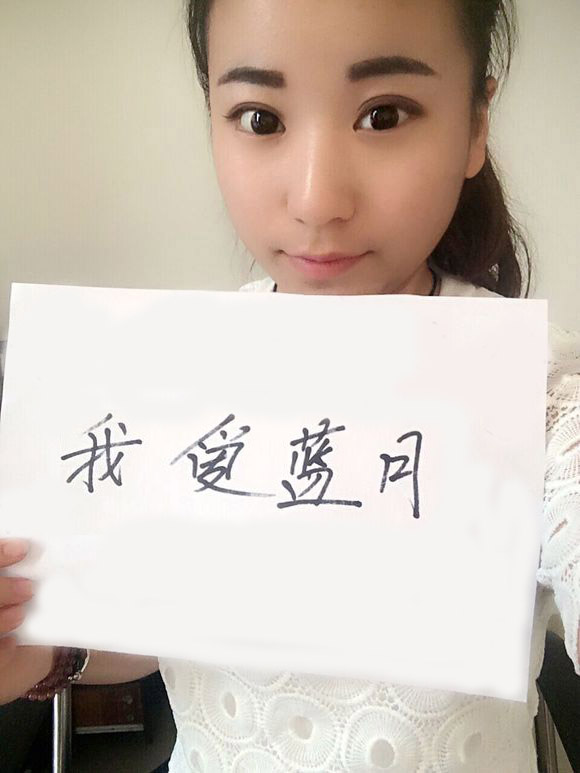 我爱蓝月